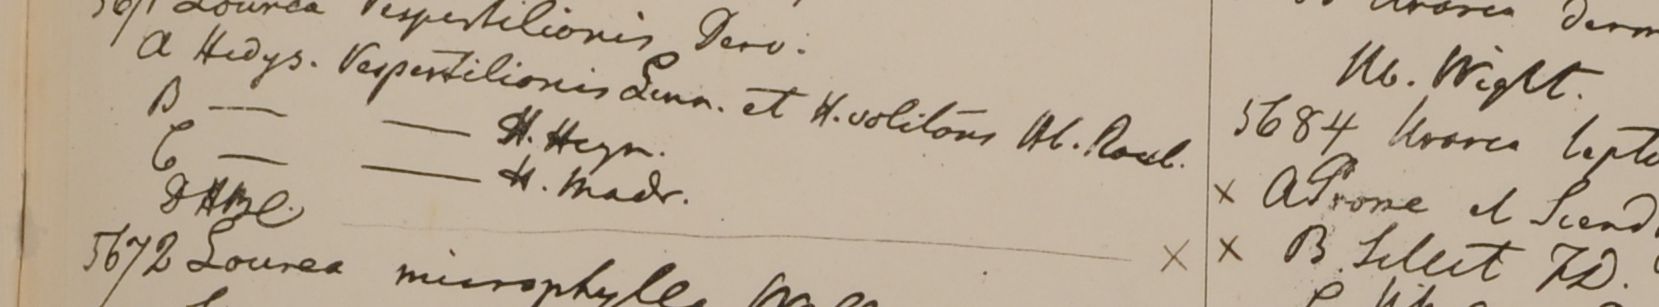 5671 Lourea Vespertilionis Desv.
A Hedys. Vespertilionis Linn. et H. volitans Hb. Roxb.
B — — H. Heyn.
C — — H. Madr.
D HBC.
5672 Lourea microphylla Wall
Uraria
Hb. Wight.
5684 Uraria lepto
× A Prome et
× × B.